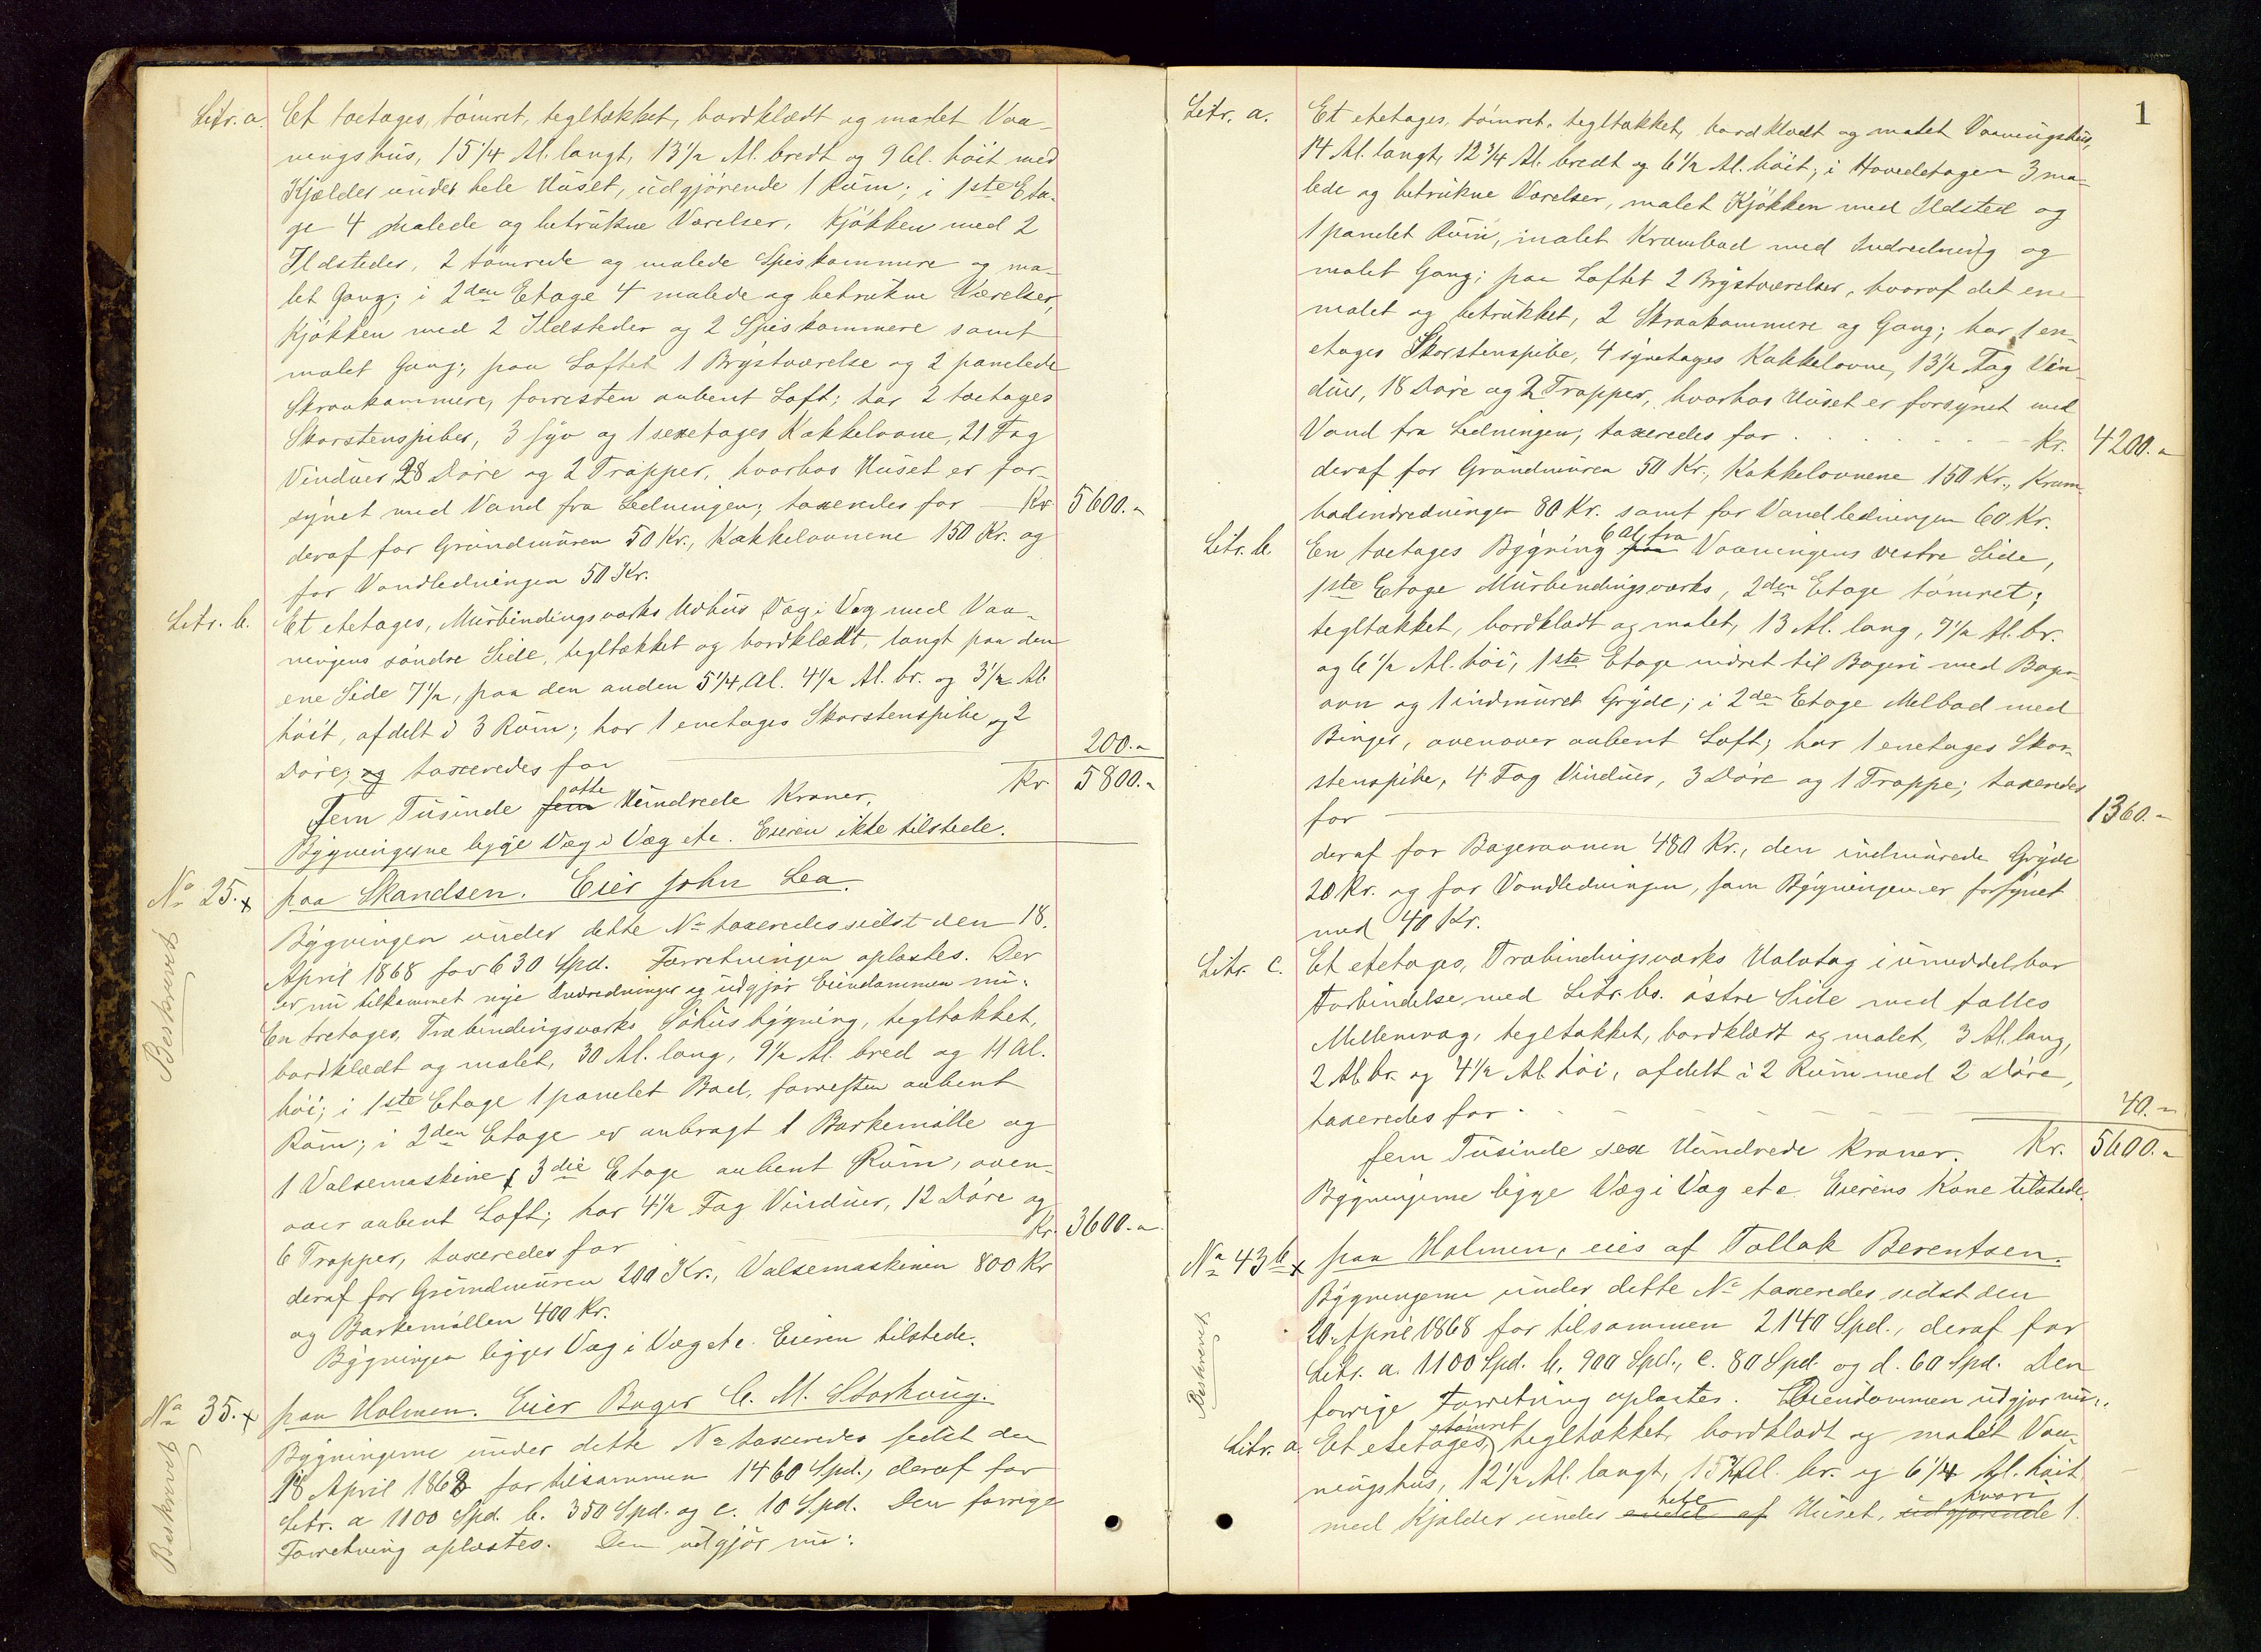 Litr. a. Et toetages, tømret, tegltækket, bordklædt og malet Vaa-
ningshus, 15 1/4 Al. langt, 13 1/2 Al. bredt og 9 Al. høit med
Kjælder under hele Huset, udgjørende 1 Rum; i 1ste Eta-
ge 4 malede og betrukne Værelser, Kjøkken med 2
Ildsteder, 2 tømrede og malede Spiskammere og ma-
let Gang; i 2den Etage 4 malede og betrukne Værelser,
Kjøkken med 2 Ildsteder og 2 Spiskammere samt
malet Gang; paa Loftet 1 Brystværelse og 2 panelede
Skraakammere, forresten aabent Loft; har 2 toetages
Skorstenspiber, 3 syv og 1 sexetages Kakkelovne, 21 Fag
Vinduer, 28 Døre og 2 Trapper, hvorhos Huset er for-
synet med Vand fra Ledningen; taxeredes for — Kr. 5600.-
deraf for Grundmuren 50 Kr., Kakkelovnene 150 Kr. og
for Vandledningen 50 Kr.
Litr. b. Et etetages, Murbindingsværks Udhus Væg i Væg med Vaa-
ningens søndre Side, tegltækket og bordklædt, langt paa den
ene Side 7 1/2, paa den anden 5 1/4 Al. 4 1/2 Al. br. og 3 1/2 Al.
høit, afdelt i 3 Rum; har 1 enetages Skorstenspibe og 2
Døre; og taxeredes for 200.-
Fem Tusinde fem otte Hundrede Kroner. Kr. 5800.-
Bygningerne ligge Væg i Væg etc. Eieren ikke tilstede.
No 25. x paa Skandsen. Eier John Lea.
Beskrevet
Bygningen under dette No taxeredes sidst den 18.
April 1868 for 630 Spd. Forretningen oplæstes. Der
er nu tilkommet nye Indredninger og udgjør Eiendommen nu:
En tretages, Træbindingsværks Søhusbygning, tegltækket,
bordklædt og malet, 30 Al. lang, 9 1/2 Al. bred og 11 Al.
høi; i 1ste Etage 1 panelet Bod, forresten aabent
Rum; i 2den Etage er anbragt 1 Barkemølle og
1 Valsemaskine, 3die Etage aabent Rum, oven-
over aabent Loft; har 4 1/2 Fag Vinduer, 12 Døre og
6 Trapper, taxeredes for Kr. 3600.-
deraf for Grundmuren 200 Kr., Valsemaskinen 800 Kr
og Barkemøllen 400 Kr.
Bygningen ligger Væg i Væg etc. Eieren tilstede.
No 35. x paa Holmen. Eier Bager C. M. Storhoug.
Beskrevet
Bygningerne under dette No taxeredes sidst den
18 April 1868 for tilsammen 1460 Spd., deraf for
Litr. a 1100 Spd. b. 350 Spd. og c. 10 Spd. Den forrige
Forretning oplæstes. Den udgjør nu:
1
Litr. a. Et etetages, tømret, tegltækket, bordklædt og malet Vaaningshus,
14 Al. langt, 12 3/4 Al. bredt og 6 1/2 Al. høit; i Hovedetagen 3 ma-
lede og betrukne Værelser, malet Kjøkken med Ildsted og
1 panelet Rum, malet Krambod med Indredning og
malet Gang; paa Loftet 2 Brystværelser, hvoraf det ene
malet og betrukket, 2 Skraakammere og Gang; har 1 en-
etages Skorstenspibe, 4 syvetages Kakkelovne, 13 1/2 Fag Vin-
duer, 18 Døre og 2 Trapper, hvorhos Huset er forsynet med
Vand fra Ledningen; taxeredes for Kr. 4200.-
deraf for Grundmuren 50 Kr., Kakkelovnene 150 Kr., Kram-
bodindredningen 80 Kr. samt for Vandledningen 60 Kr.
Litr. b. En toetages Bygning paa 6 Al. fra Vaaningens vestre Side,
1ste Etage Murbindingsværks, 2den Etage tømret;
tegltækket, bordklædt og malet, 13 Al. lang, 7 1/2 Al. br.
og 6 1/2 Al. høi, 1ste Etage indret til Bageri med Bager-
ovn og 1 indmuret Gryde; i 2den Etage Melbod med
Binger, ovenover aabent Loft; har 1 enetages Skor-
stenspibe, 4 Fag Vinduer, 3 Døre og 1 Trappe; taxeredes
for 1360.-
deraf for Bagerovnen 480 Kr., den indmurede Gryde
20 Kr. og for Vandledningen, som Bygningen er forsynet
med 40 Kr.
Litr. c. Et etetages, Træbindingsværks Halvtag i umiddelbar
Forbindelse med Litr. bs. østre Side med fælles
Mellemvæg, tegltækket, bordklædt og malet, 3 Al. lang,
2 Al. br. og 4 1/2 Al. høi, afdelt i 2 Rum med 2 Døre,
taxeredes for 40.-
fem Tusinde sex Hundrede Kroner. Kr. 5600.-
Bygningerne ligge Væg i Væg etc. Eierens Kone tilstede.
No 43 b x paa Holmen, eies af Tollak Berentsen.
Beskrevet
Bygningerne under dette No taxeredes sidst den
20. April 1868 for tilsammen 2140 Spd., deraf for
Litr. a. 1100 Spd. b. 900 Spd., c. 80 Spd. og d. 60 Spd. Den
forrige Forretning oplæstes. Eiendommen udgjør nu:
Litr. a. Et etetages, tømret tegltækket, bordklædt og malet Vaa-
ningshus, 12 1/2 Al. langt, 15 3/4 Al. br. og 6 1/4 Al. høit
med Kjælder under endel af hele Huset, udgjørende hvori 1.